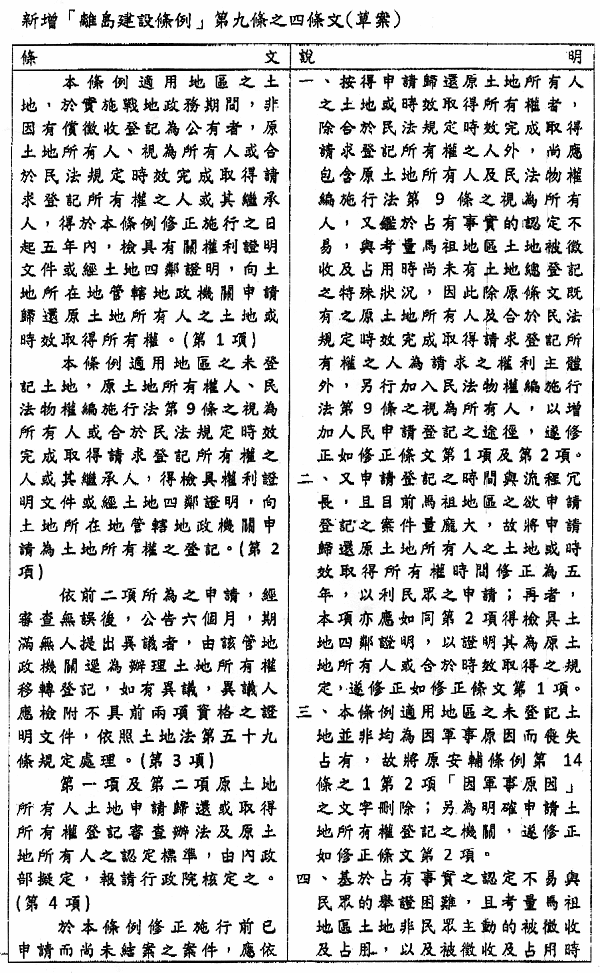 新增「離島建設條例」第九條之四條文(草案)
條文
本條例適用地區之土
地，於實施戰地政務期間，非
因有償徵收登記為公有者，原
土地所有人、視為所有人或合
於民法規定時效完成取得請
求登記所有權之人或其繼承
人，得於本條例修正施行之日
起五年內，檢具有關權利證明
文件或經土地四鄰證明，向土
地所在地管轄地政機關申請
歸還原土地所有人之土地或
時效取得所有權。(第1項)
本條例適用地區之未登
記土地，原土地所有權人、民
法物權編施行法第9條之視為
所有人或合於民法規定時效
完成取得請求登記所有權之
人或其繼承人，得檢具權利證
明文件或經土地四鄰證明，向
土地所在地管轄地政機關申
請為土地所有權之登記。(第2
項)
依前二項所為之申請，經
審查無誤後，公告六個月，期
滿無人提出異議者，由該管地
政機關逕為辦理土地所有權
移轉登記，如有異議，異議人
應檢附不具前兩項資格之證
明文件，依照土地法第五十九
條規定處理。(第3項)
第一項及第二項原土地
所有人土地申請歸還或取得
所有權登記審查辦法及原土
地所有人之認定標準，由內政
部擬定，報請行政院核定之。
(第4項)
於本條例修正施行前已
申請而尚未結案之案件，應依
說明
一、按得申請歸還原土地所有人
之土地或時效取得所有權者，
除合於民法規定時效完成取得
請求登記所有權之人外，尚應
包含原土地所有人及民法物權
編施行法第9條之視為所有
人，又鑑於占有事實的認定不
易，與考量馬祖地區土地被徵
收及占用時尚未有土地總登記
之特殊狀況，因此除原條文既
有之原土地所有人及合於民法
規定時效完成取得請求登記所
有權之人為請求之權利主體
外，另行加入民法物權編施行
法第9條之視為所有人，以增
加人民申請登記之途徑，遂修
正如修正條文第1項及第2項。
二、又申請登記之時間與流程冗
長，且目前馬祖地區之欲申請
登記之案件量龐大，故將申請
歸還原土地所有人之土地或時
效取得所有權時間修正為五
年，以利民眾之申請；再者，
本項亦應如同第2項得檢具土
地四鄰證明，以證明其為原土
地所有人或合於時效取得之規
定，遂修正如修正條文第1項。
三、本條例適用地區之未登記土
地並非均為因軍事原因而喪失
占有，故將原安輔條例第14
條之1第2項「因軍事原因」
之文字刪除；另為明確申請土
地所有權登記之機關，遂修正
如修正條文第2項。
四、基於占有事實之認定不易與
民眾的舉證困難，且考量馬祖
地區土地非民眾主動的被徵收
及占用，以及被徵收及占用時